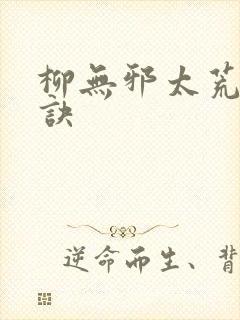 柳無邪太荒
訣
逆命而生、背